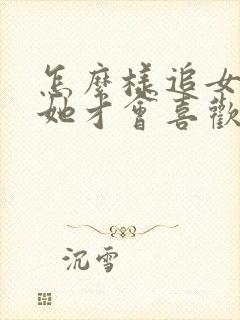 怎麼樣追女
她才會喜歡
沉雪